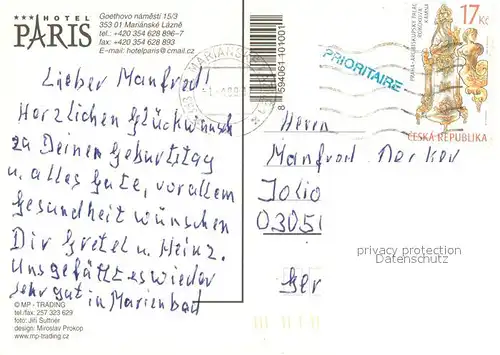 *** HOTEL
PARIS
Goethovo náměstí 15/3
353 01 Mariánské Lázně
tel.: +420 354 628 896–7
fax: +420 354 628 893
E-mail: hotelparis@cmail.cz
Lieber Manfred!
Herzlichen Glückwunsch
zu Deinem Geburtstag
u. alles Gute, vor allem
Gesundheit wünschen
Dir Gretel u. Heinz.
Uns gefällt es wieder
sehr gut in Marienbad
© MP - TRADING
tel./fax: 257 323 629
foto: Jiří Suttner
design: Miroslav Prokop
www.mp-trading.cz
8 594061 101001
PRIORITAIRE
17 Kč
ČESKÁ REPUBLIKA
Herrn
Manfred
03051
Ger
privacy protection
AnsichtskartenVersand.com